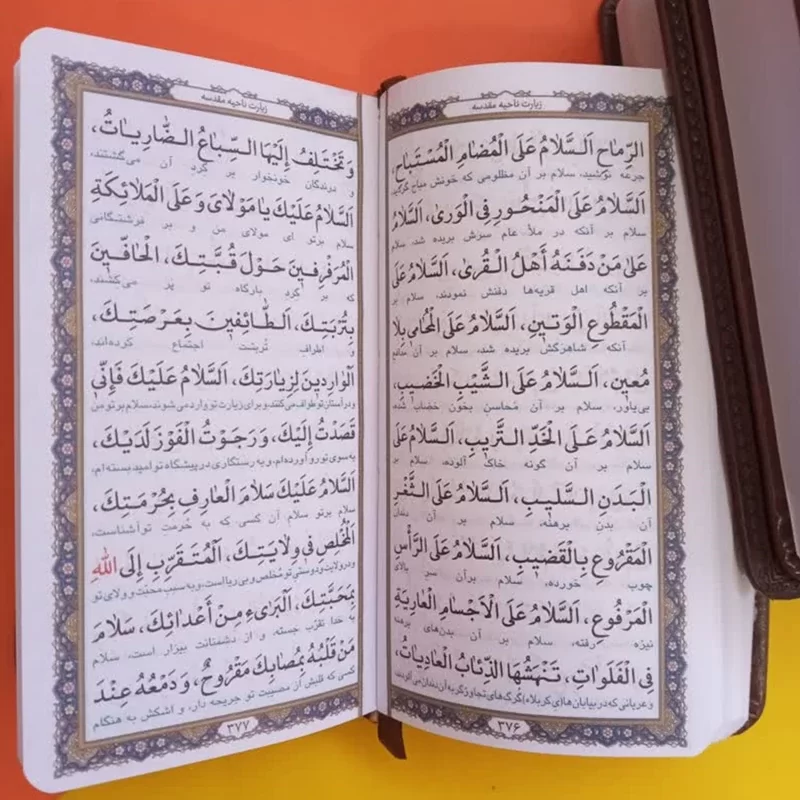 زیارت ناحیه مقدسه
الرِّماحِ اَلسَّلامُ عَلَى الْمُضامِ الْمُسْتَباحِ،
جرعه نوشید، سلام بر آن مظلومی که خونش مباح گردید
اَلسَّلامُ عَلَى الْمَنْحُورِ فِى الْوَرىٰ، اَلسَّلامُ
سلام بر آنکه در ملأ عام سرش بریده شد، سلام
عَلىٰ مَنْ دَفَنَهُ اَهْلُ الْقُرىٰ، اَلسَّلامُ عَلَى
بر آنکه اهل قریه‌ها دفنش نمودند، سلام بر
الْمَقْطُوعِ الْوَتينِ، اَلسَّلامُ عَلَى الْمُحامى بِلا
آنکه شاهرگش بریده شد، سلام بر آن حامی
مُعينٍ، اَلسَّلامُ عَلَى الشَّيْبِ الْخَضيبِ،
بی‌یاور، سلام بر آن مَحاسنِ بخون خضاب شده
اَلسَّلامُ عَلَى الْخَدِّ التَّريبِ، اَلسَّلامُ عَلَى
سلام بر آن گونه خاک آلوده، سلام بر
الْبَدَنِ السَّليبِ، اَلسَّلامُ عَلَى الثَّغْرِ
آن بدن برهنه، سلام بر آن دندان
الْمَقْرُوعِ بِالْقَضيبِ، اَلسَّلامُ عَلَى الرَّأْسِ
چوب خورده، سلام برآن سرِ بالای
الْمَرْفُوعِ، اَلسَّلامُ عَلَى الْاَجْسامِ الْعارِيَةِ
نیزه رفته، سلام بر آن بدن‌های برهنه
فِى الْفَلَواتِ، تَنْهَشُهَا الذِّئابُ الْعادِياتُ،
و عریانی که در بیابان‌ها(ی کربلاء) گرگ‌های تجاوزگر به آن دندان می‌آلودند
۳۷۶
زیارت ناحیه مقدسه
وَ تَخْتَلِفُ اِلَيْهَا السِّباعُ الضّارِياتُ،
و درندگان خونخوار بر گرد آن می‌گشتند،
اَلسَّلامُ عَلَيْكَ يا مَوْلاىَ وَ عَلَى الْمَلائِكَةِ
سلام برتو ای مولای من و بر فرشتگانی
الْمُرَفْرِفينَ حَوْلَ قُبَّتِكَ، الْحافّينَ
که بر گِردِ بارگاه تو پَر می‌کشند،
بِتُرْبَتِكَ، اَلطّائِفينَ بِعَرْصَتِكَ،
و اطراف تُربتت اجتماع کرده‌اند،
اَلْوارِدينَ لِزِيارَتِكَ، اَلسَّلامُ عَلَيْكَ فَاِنّى
و در آستان تو طواف می‌کنند و برای زیارت تو وارد می‌شوند، سلام بر تو من
قَصَدْتُ اِلَيْكَ، وَ رَجَوْتُ الْفَوْزَ لَدَيْكَ،
به سوی تو رو آورده‌ام، و به رستگاری در پیشگاه تو امید بسته‌ام،
اَلسَّلامُ عَلَيْكَ سَلامَ الْعارِفِ بِحُرْمَتِكَ،
سلام برتو سلام آن کسی که به حُرمتِ تو آشناست،
اَلْمُخْلِصِ فى وِلايَتِكَ، اَلْمُتَقَرِّبِ اِلَى اللّٰهِ
و در ولایت و دوستی تو مُخلص و بی ریا است، و به سبب محبّت و ولای تو
بِمَحَبَّتِكَ، اَلْبَرىءِ مِنْ اَعْدائِكَ، سَلامَ
به خدا تقرّب جسته، و از دشمنانت بیزار است، سلام
مَنْ قَلْبُهُ بِمُصابِكَ مَقْرُوحٌ، وَ دَمْعُهُ عِنْدَ
کسی که قلبش از مصیبت تو جریحه دار، و اشکش به هنگام
۳۷۷